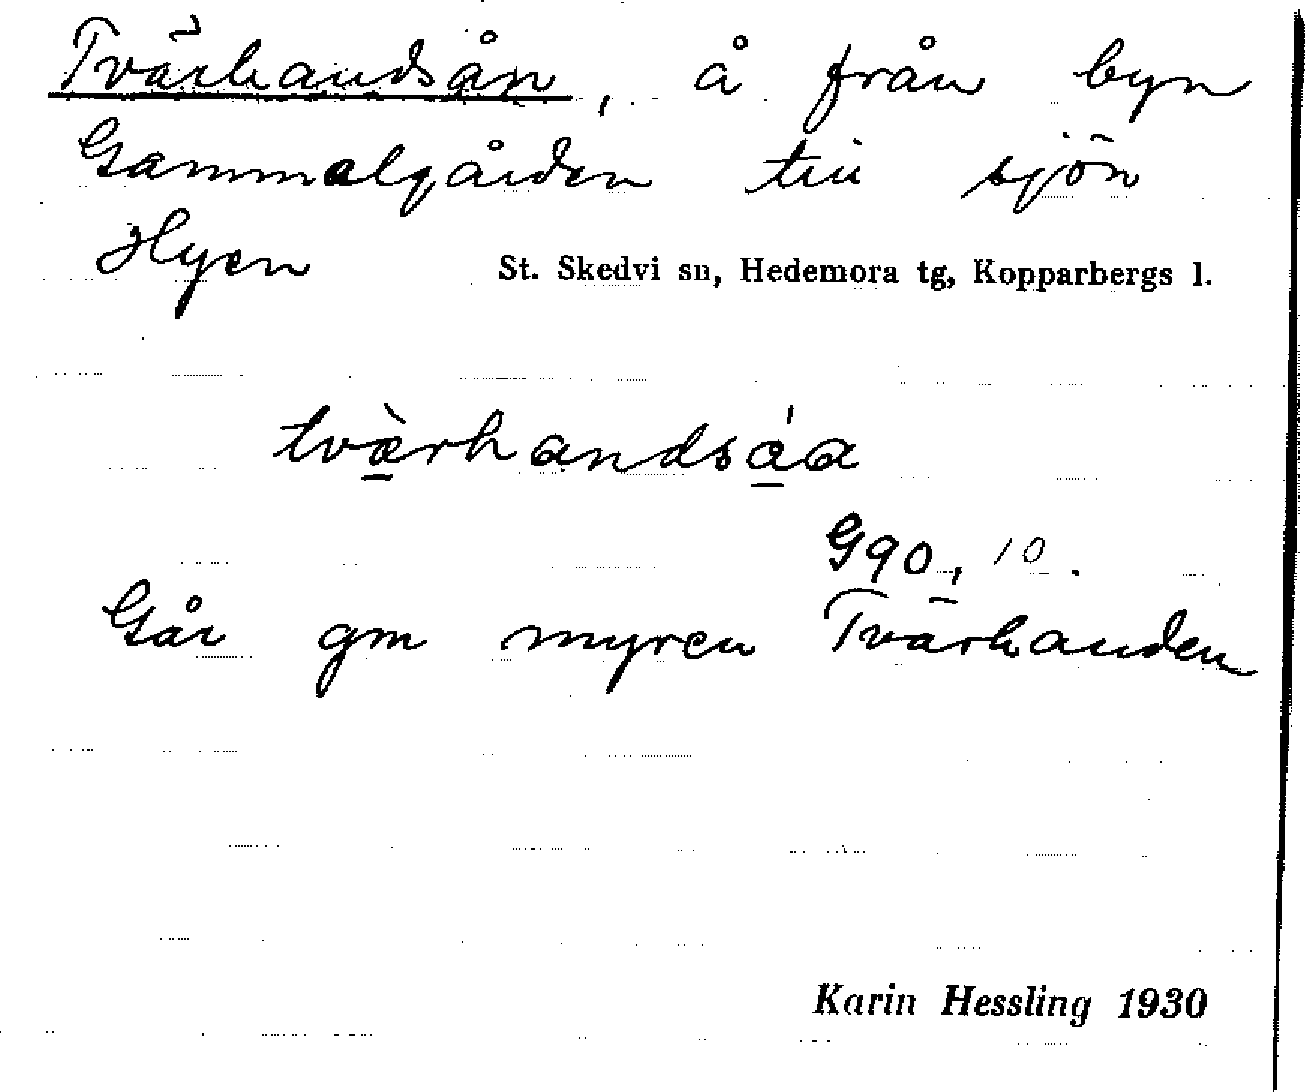 Tvärhandsån, å från byn
Gammalgården till sjön
Hyen St. Skedvi sn, Hedemora tg, Kopparbergs l.
tvæ̀rhandsáa
G90, 10.
Går gm myren Tvärhanden
Karin Hessling 1930